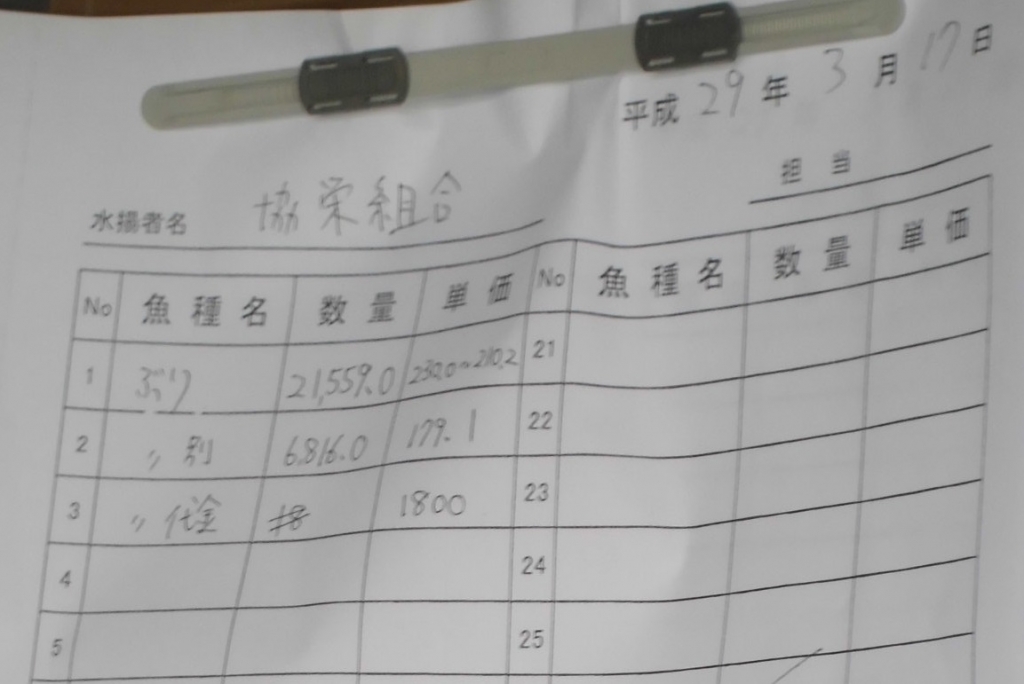 平成 29 年 3 月 17 日
担 当
水揚者名 協栄組合
No 魚種名 数量 単価 No 魚種名 数量 単価
1 ぶり 21,559.0 230.0~210.2 21
2 〃 別 6,816.0 179.1 22
3 〃 代金 1800 23
4 24
5 25